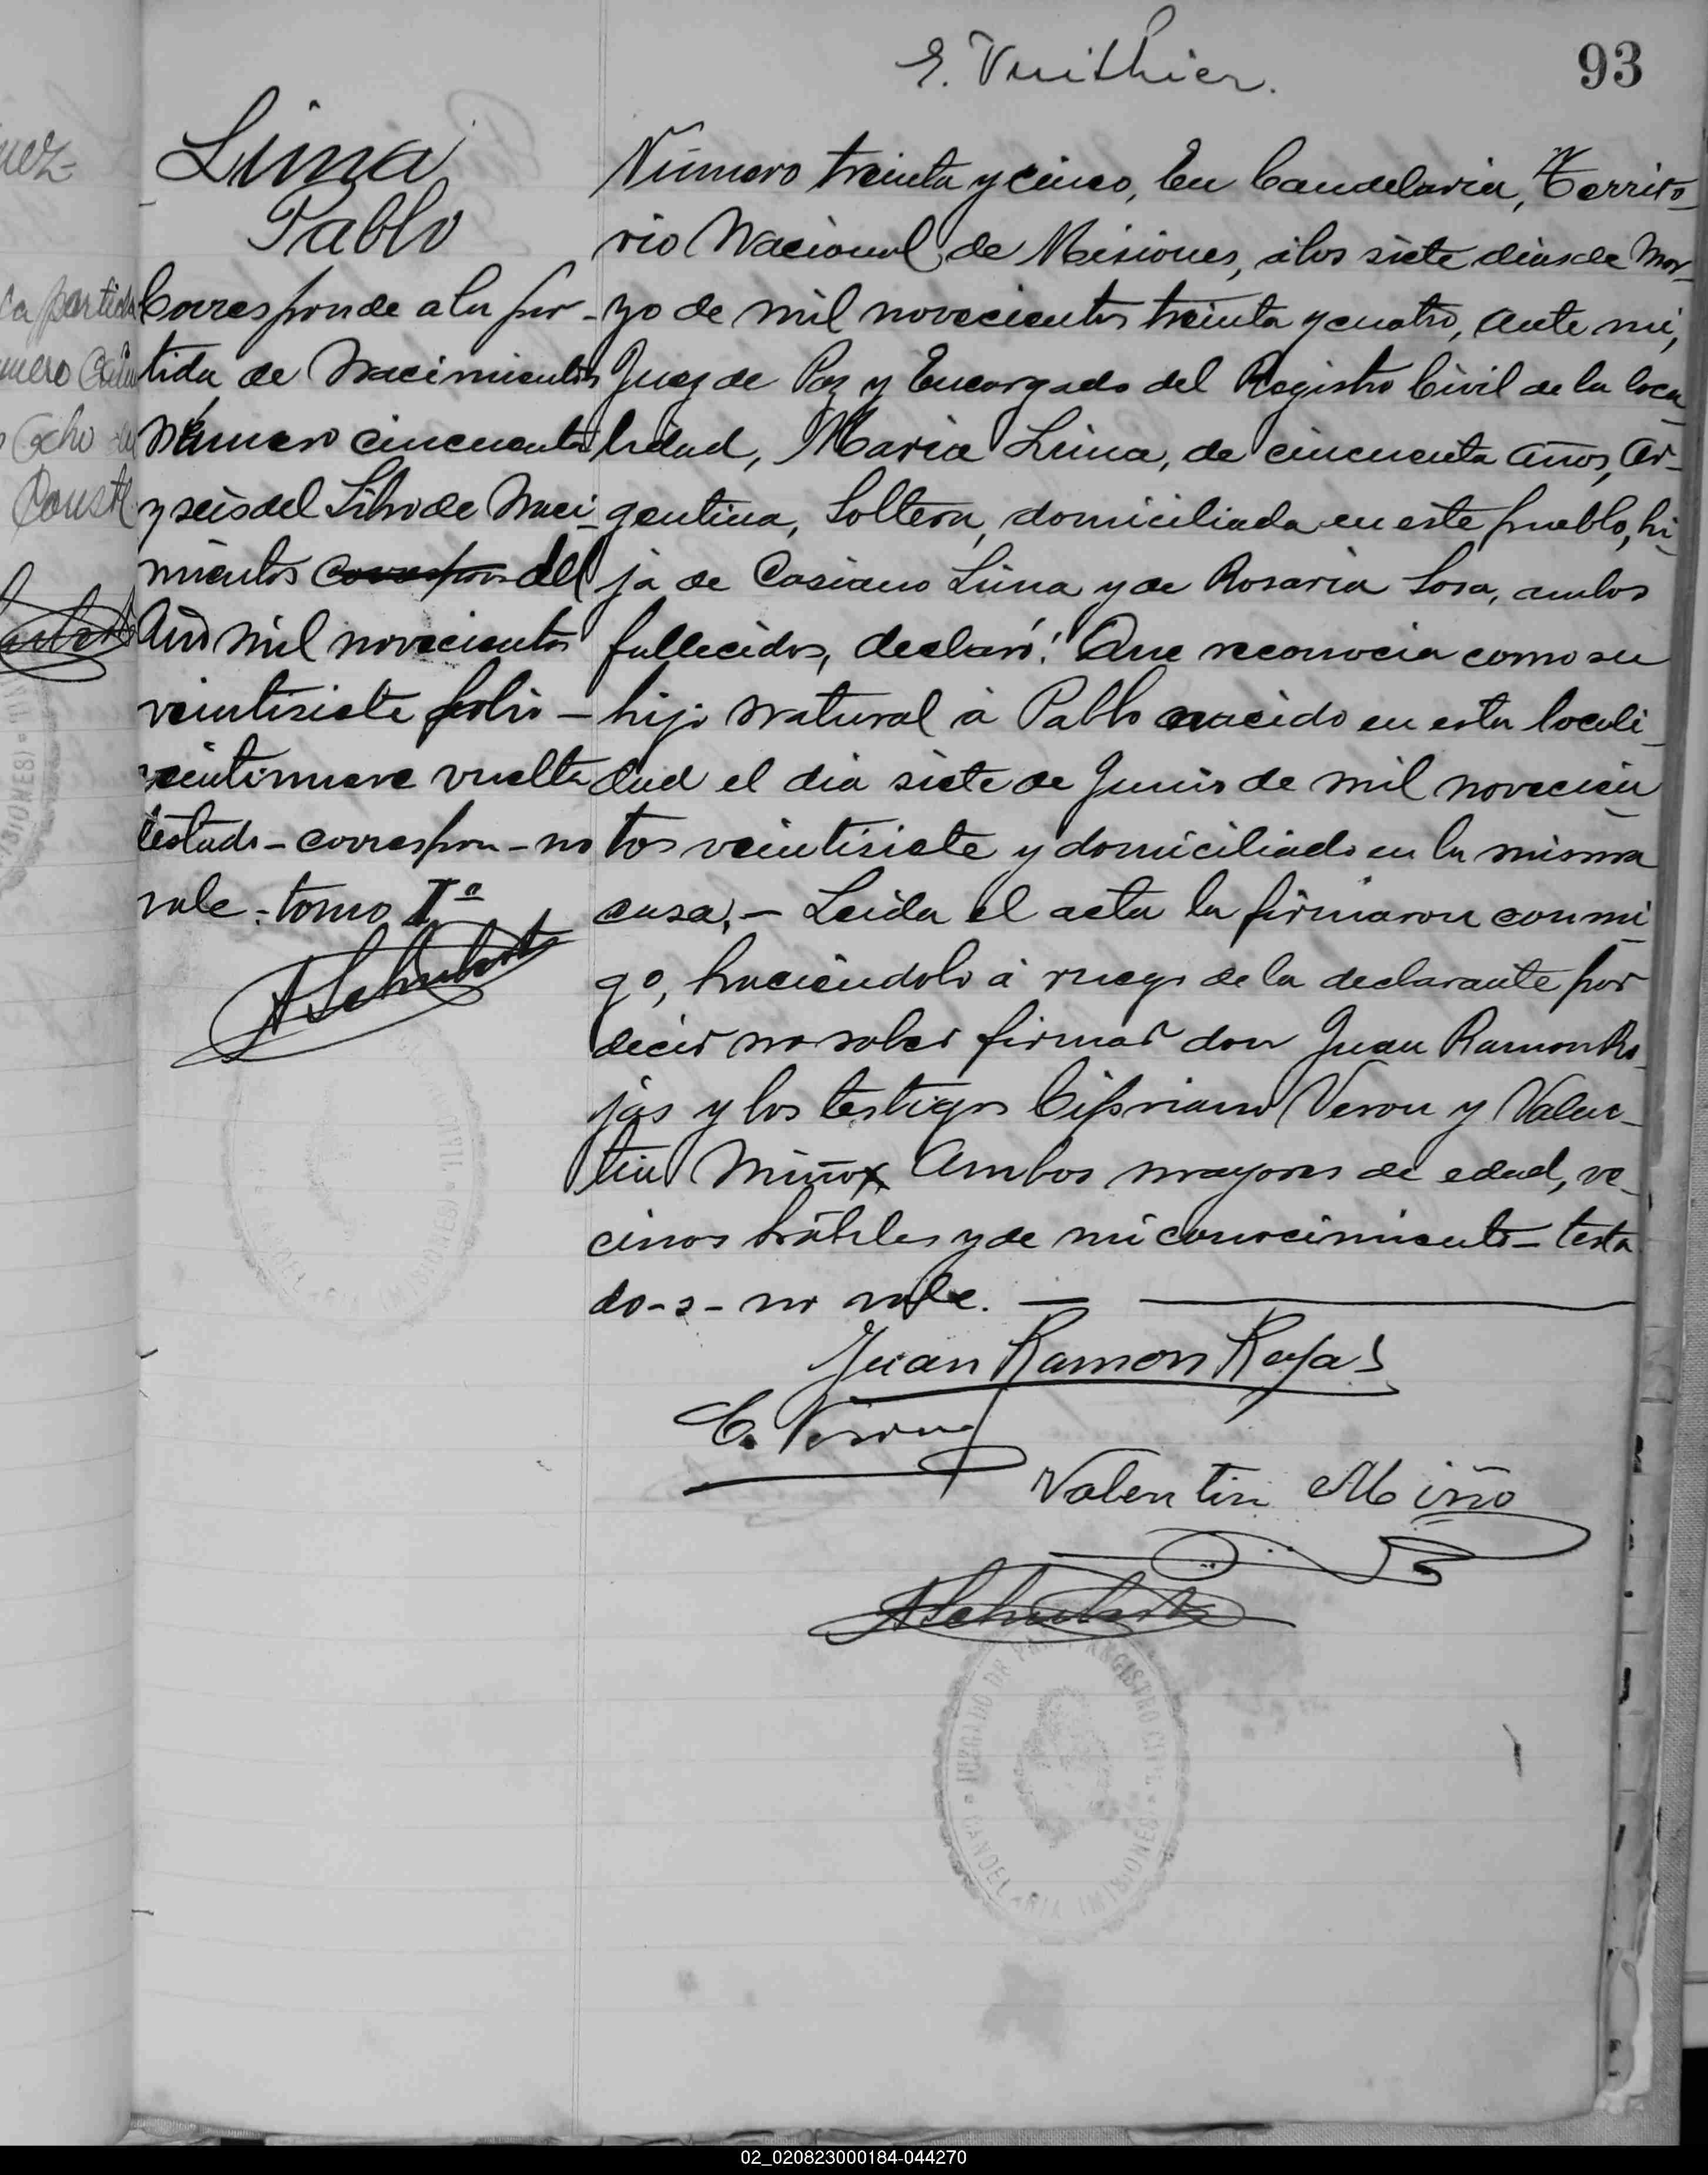 E. Vuithier.
93
Lima
Pablo
Corresponde a la par-
tida de Nacimientos
Número cincuenta
y seis del Libro de Naci-
mientos correspon del
Año mil novecientos
veintisiete folio -
veintinueve vuelta
testado - correspon - no
vale - tomo Iº
ASchubert
Número treinta y cinco, En Candelaria, Territo-
rio Nacional de Misiones, á los siete dias de Mar-
zo de mil novecientos treinta y cuatro, ante mi,
Juez de Paz y Encargado del Registro Civil de la loca-
lidad, Maria Lima, de cincuenta años, ar-
gentina, Soltera, domiciliada en este pueblo, hi-
ja de Casiano Lima y de Rosaria Sosa, ambos
fallecidos, declaró: Que reconocia como su
hijo natural á Pablo nacido en esta locali-
dad el dia siete de Junio de mil novecien-
tos veintisiete y domiciliado en la misma
casa, - Leida el acta la firmaron conmi-
go, haciéndolo á ruego de la declarante por
decir no saber firmar don Juan Ramon Ro-
jas y los testigos Cipriano Veron y Valen-
tin Miño Ambos mayores de edad, ve-
cinos hábiles y de mi conocimiento - testa-
do - s - no vale.
Juan Ramon Rojas
C. Veron
Valentin Miño
ASchubert
JUZGADO DE PAZ REGISTRO CIVIL
CANDELARIA (MISIONES)
la partida
Ocho
02_020823000184-044270